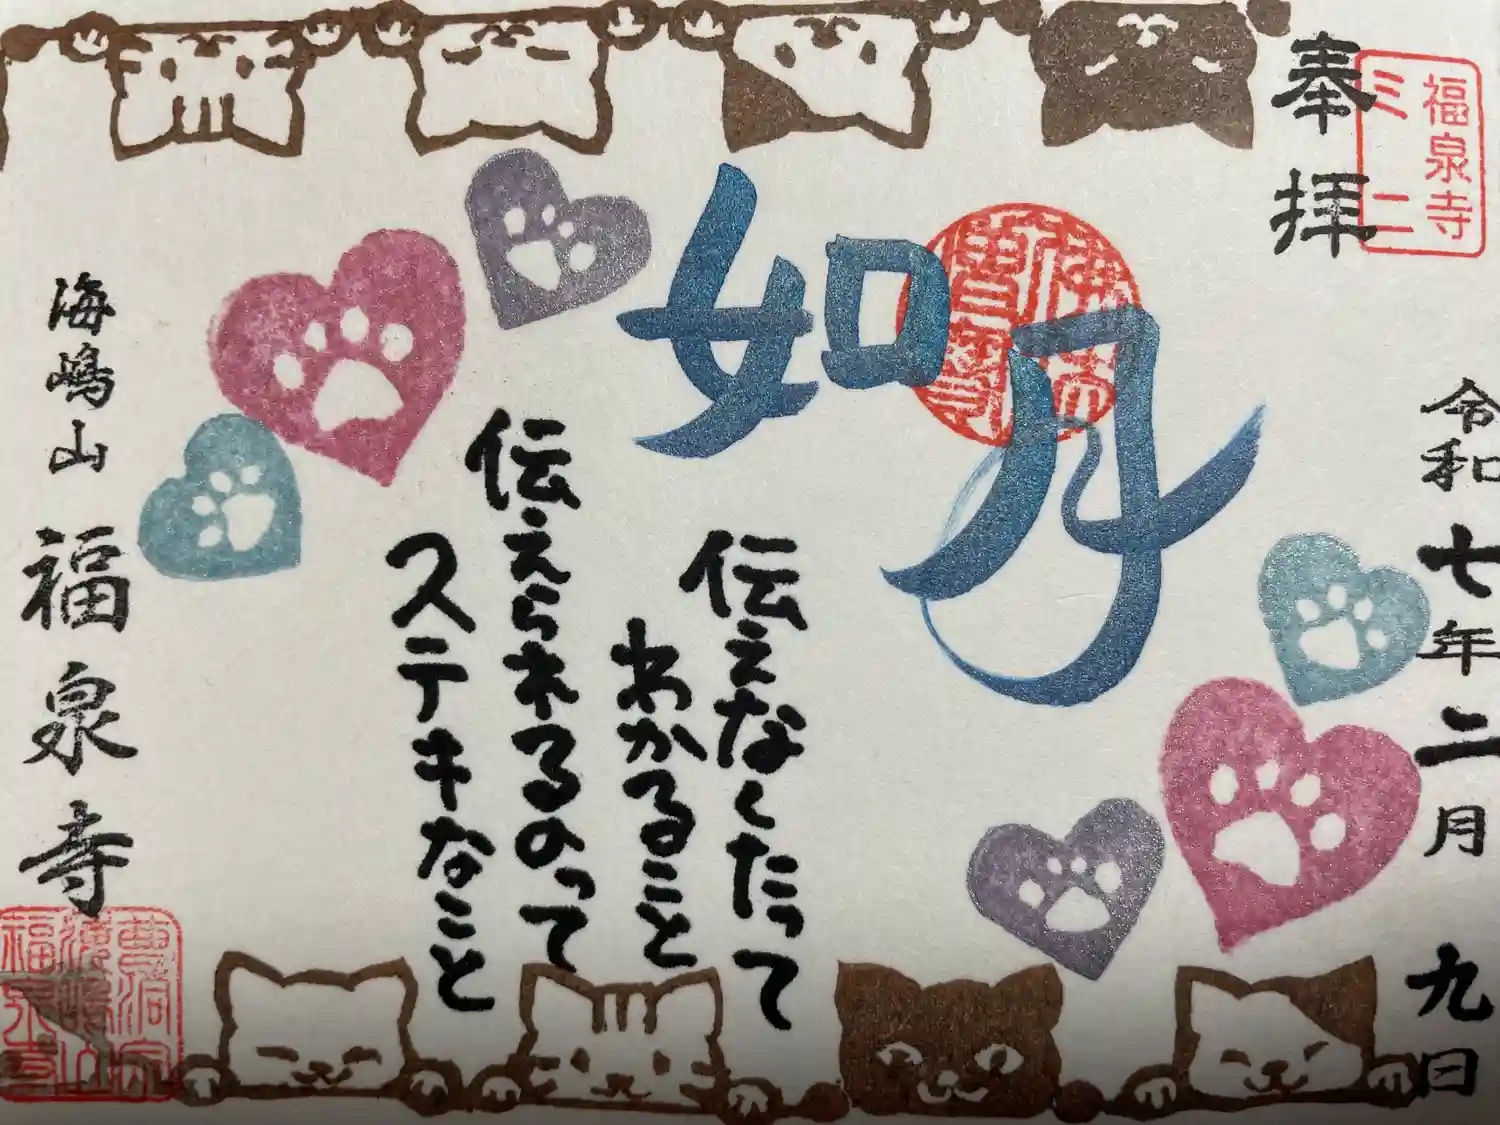 奉拝
福泉寺
ミニ
令和七年二月九日
如月
伝えなくたって
わかること
伝えられるのって
ステキなこと
海嶋山
福泉寺
曹洞宗
海嶋山
福泉寺